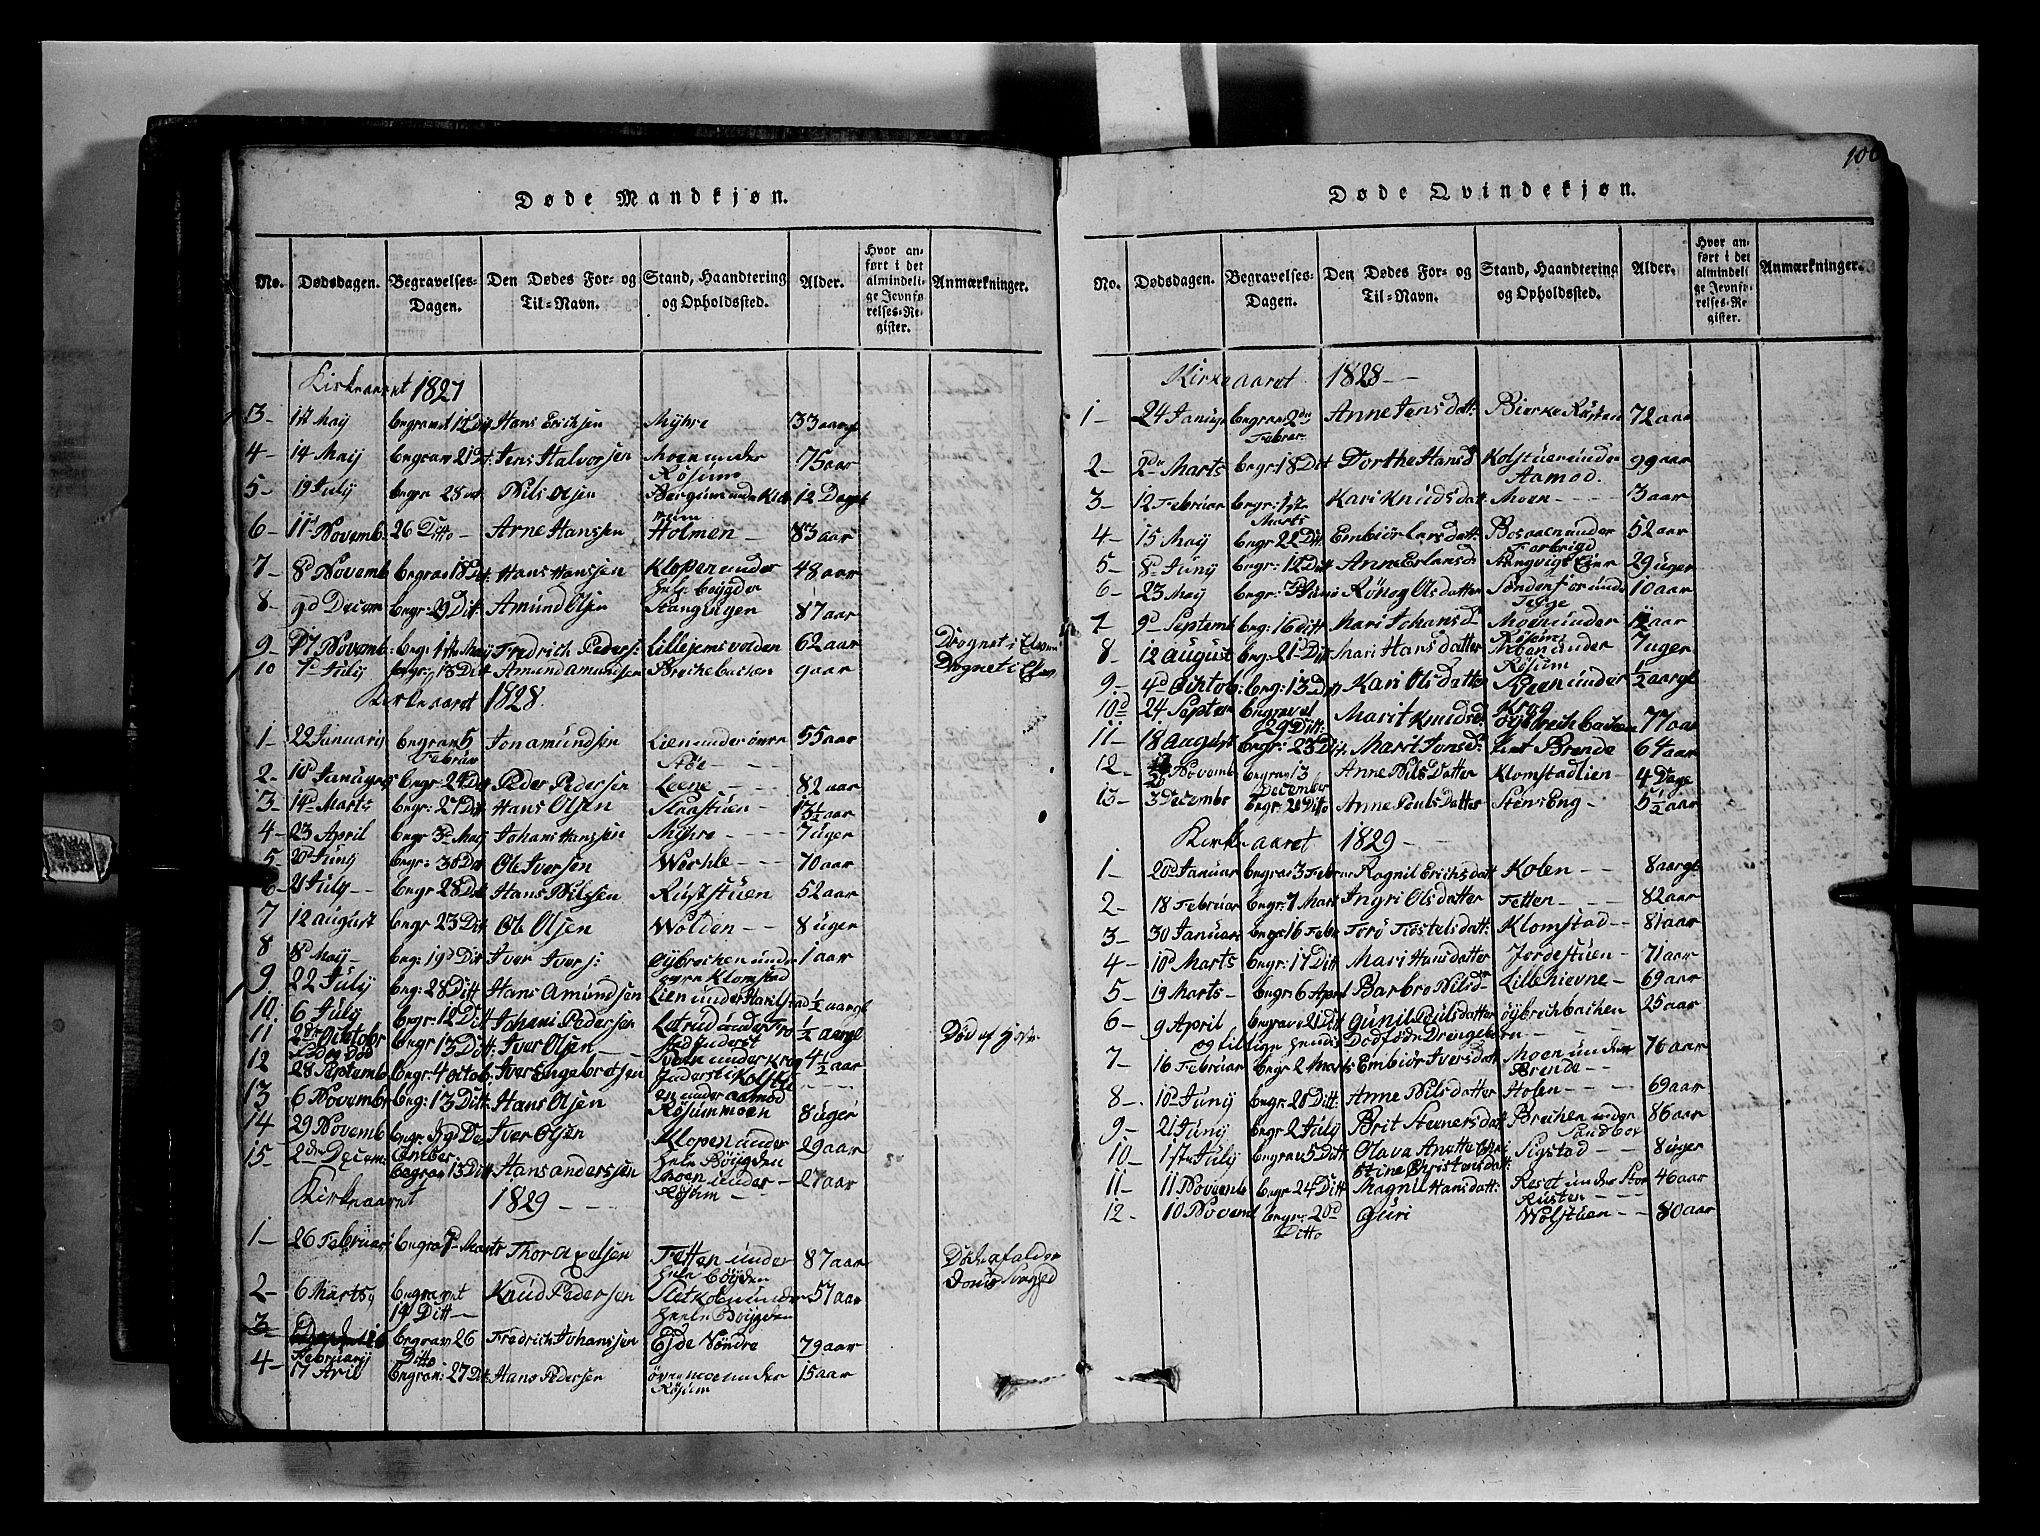 106
Døde Mandkjøn.
No. Dødsdagen. Begravelses-Dagen. Den Dødes For- og Til-Navn. Stand, Haandtering og Opholdssted. Alder. Hvor anført i det almindelige Jevnførelses-Register. Anmærkninger.
Kirkeaaret 1827
3- 1ste May begravet 12 Dit Hans Erichsen Myhre 33 aar
4- 14 Maij begrav 21 D: Jens Halvorsen Moen under Rösum 75 aar
5- 19 July begr 28 Nils Olsen 12 Dage
6- 11d Novemb: 26 Ditto Arne Hanssen Holmen 83 aar
7- 8d Novemb begrav 18 Dit Hans Hanssen Klopen under Hele böygden 48 aar
8- 9d Decem begr: 29 Dit: Amund Olsen Stangingen 87 aar
9- 17 Novemb: beg: 1ste May Fredrich Peders: Lillejemsvolden 62 aar Drognet i Elven
10 7de July begr: 13 Dit Amund Amundsen Brechebachen 9 aar Drognet i Elven
Kirkeaaret 1828
1- 22 Januarij begrav 5 Februar Jon Amundsen Lien under övre 55 aar
2- 10d Januarij begr 24 Dit Peder Pedersen Leene 82 aar
3- 14d Marts begr: 27 Dit Hans Olsen Slaastuen 13½ aar
4- 23 April begr 3d Maij Johans Hanssen Myhre 7 uger
5 20d Juny begr: 30 Dit Ole Iversen Werhle 70 aar
6- 21 July begr 28 Dit Hans Nilssen Ruststuen 52 aar
7 12 august begr 23 Dit Ole Olsen Wolden 8 uger
8 8d May begr: 19d Dit Iver Ivers: Öybrechen under Klomstad 1 aar
9. 22 July begr: 28 Ditt Hans Amundsen Lien under ½ aar
10 6 July begr: 12 Dit Johans Pedersen under ½ aar
11 2den Oktobr begr 13 Dit: Iver Olsen Död af
12 28 Septemb begr: 4 Octob. Iver Engebretsen Sveen under Krog 4½ aar
13 6 Novembr beg: 13 Ditt Hans Olsen Rösummoen 8 uger
14 29 Novemb begr Iver Olsen Klopen under Hele Böygden 29 aar
15- 2den Decem: begrav 13 Ditt Hans anderssen Moen under Rösum 27 aar
Kirkeaaret 1829
1- 26 Februar begrav 7- Marts Thor Axelsen Tetten under Hele böyden 87 aar
2- 6 Marts begravet 14 Ditt Knud Pedersen under Hele Böygden 57 aar
3 Februarij begrav 26 Ditto Fredrich Johanssen Eide Nöndre 79 aar
4- 17 begrav: 27 Dit: Hans Pedersen övre moe under Rösum 15 aar
Døde Qvindekjøn.
No. Dødsdagen. Begravelses-Dagen. Den Dødes For- og Til-Navn. Stand, Haandtering og Opholdssted. Alder. Hvor anført i det almindelige Jevnførelses-Register. Anmærkninger.
Kirkeaaret 1828
1- 24 Januar begrav 2den Februar Anne Jensdatt: Bierke 72 aar
2- 2den Marts begr: 18 Dit Dorthe Hansd Kolstuen under Aamod. 99 aar
3- 12 Februar begr: 1ste Marts Kari Knudsdatt: Moen 3 aar
4- 15 May begr 22 Dit Embiör Larsdatt: Bosaaen under Forbrigd 52 aar
5- 8d Juny begr: 12 Dit Anne Erlansd 29 uger
6- 23 May begr: 3 Juni Rönog Olsdatter under Tegge 10 aar
7- 9d Septemb beg: 16 ditt Mari Johansd Moen under Rösum aar
8- 12 august beg: 21 Dit Mari Hansdatter Moen under Rösum 7 uger
9- 4d Ocktob: beg: 13 Dit Kari Olsdatter Sveen under Krog ½ aar
10d 24 Septem begravet 29 Ditt: Marit Knudsd Öybrechbachen 77 aar
11- 18 august begr: 23 Dit: Marit Jonsd: Brende 67 aar
12- Novemb begrav 13 December Anne Nilsdatter Klomstadlien 4 Dage
13- 3 Decembr begr: 21 Ditto Anne Poulsdatter Stens Eng 5½ aar
Kirkeaaret 1829
1- 20d Januar begrav 3 Febr Ragnil Erichsdatt Kolen 8 aar
2- 18 Februar begr: 7 Mart Ingri Olsdatter Tetten 82 aar
3- 30 Januar begr 16 Febr Torö Tostelsdatt: Klomstad 81 aar
4- 10d Marts begr: 17 Ditt Mari Hansdatter Jordestuen 71 aar
5- 19 Marts begr: 6 April Barbro Nilsd Lillehievne 69 aar
6- 9 April begrave 21 Ditt Gunil Poulsdatter öybrechbachen 25 aar
og tillige hendes Dödföde Drengebarn
7- 16 Februar begr 2 Marts Embiör Iversdatt Moen under Brende 76 aar
8- 10d Juny begr: 28 Ditt: Anne Nilsdatter Holen 69 aar
9- 21 Juny begr 2 July Brit Stenersdat Brechen under Sandboe 86 aar
10- 17de July begrav 5 Ditt Olava Anette Christine Christensdatt: Sigstad 8 uger
11- 11 Novemb begr 24 Ditt Magnil Hansdatt: under Stor Rusten 46 aar
12- 10 Novemb begr: 20d Ditto Guri Wolstuen 80 aar